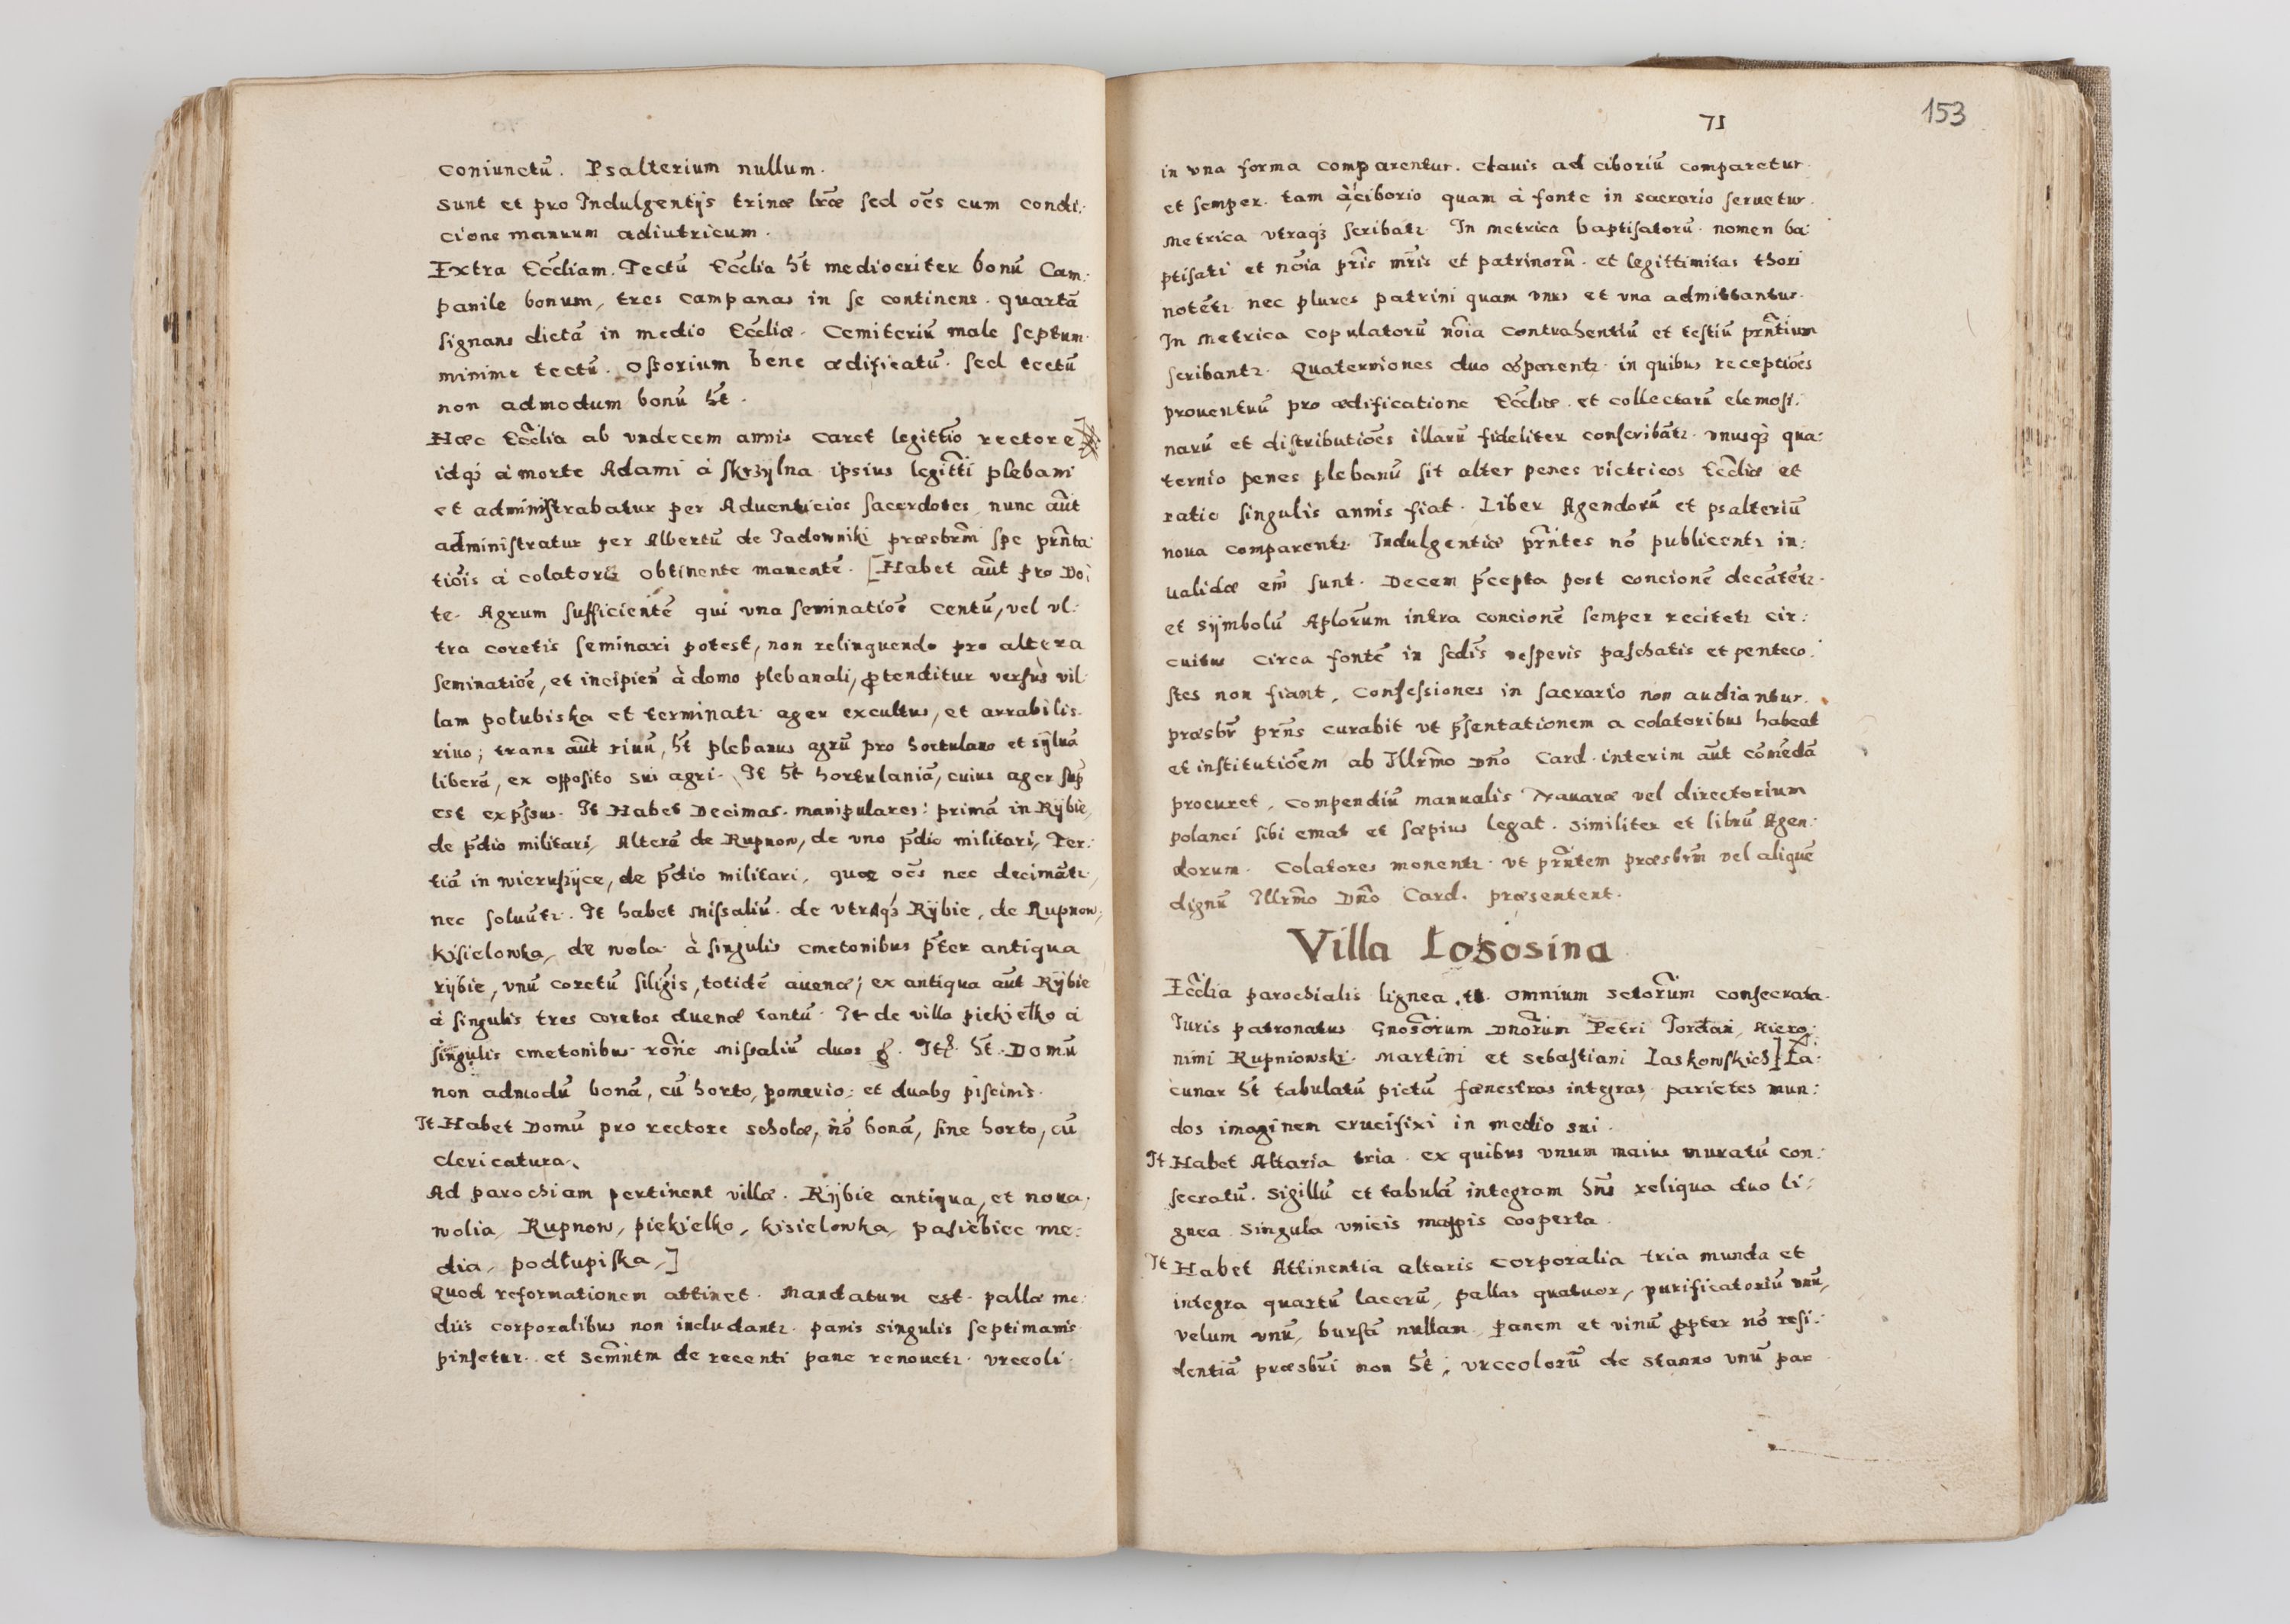 coniunctū. Psalterium nullum.
sunt et pro Indulgentijs trinæ lr̃æ sed oc̃s cum condi:
cione manuum adiutricum.
Extra Ecc̃liam. Tectū Ecc̃lia ht̃ mediocriter bonū Cam:
panile bonum, tres campanas in se continens. quartā
signans dictā in medio Ecc̃liæ. Cemiteriū male septum.
minime tectū. ossorium bene ædificatū. sed tectū
non admodum bonū ht̃.
Hæc Ecc̃lia ab vndecem annis caret legittĩo rectore]
idq; à morte Adami à skrzylna ipsius legitt̃i plebani
et administrabatur per Aduenticios sacerdotes, nunc aũt
administratur per Albertū de Jadowniki præsbrm̃ spe prñta
tiõis à colatoris obtinente manentē. [Habet aũt pro Do:
te. Agrum sufficientē qui vna seminatiõe centū, vel vl:
tra coretis seminari potest, non relinquendo pro altera
seminatiõe, et incipieñ à domo plebanali, ꝓtenditur versùs vil
lam połubiska et terminatr ager excultus, et arrabilis.
riuo; trans aũt riuū, ht̃ plebanus agrū pro hortulano et sÿluā
liberā, ex opposito sui agri. It ht̃ hortulaniā, cuius ager sup̃
est exp̃ssus. It Habet Decimas. manipulares: primā in Rÿbie,
de p̃dio militari, Alterā de Rupnow, de vno p̃dio militari, Ter:
tiā in wierußÿce, de p̃dio militari, quæ oc̃s nec decimātr,
nec soluūtr. It habet missaliū. de vtraq; Rÿbie, de Rupnow,
Kisielowka, de wola à singulis cmetonibus p̃ter antiqua
rÿbie, vnū coretū siligis, totidē auenæ; ex antiqua aũt Rÿbie
à singulis tres coretos auenæ tantū. It de villa piekiełko à
singulis cmetonibus rõne missaliū duos g. It. ht̃. Domū
non admodū bonā, cū horto, pomerio; et duabꝯ piscinis.
It Habet Domū pro rectore scholæ, nō bonā, sine horto, cū
clericatura.
Ad parochiam pertinent villæ. Rÿbie antiqua, et noua,
wolia, Rupnow, piekiełko, kisielowka, pasiebiec me:
dia, podłupiska,]
Quod reformationem attinet. Mandatum est. pallæ me:
diis corporalibus non includantr. panis singulis septimanis
pinsetur. et Scm̃ntm de recenti pane renouetr. vrceoli
71
153
in vna forma comparentur. clauis ad ciboriū comparetur
et semper. tam à ciborio quam à fonte in sacrario seruetur.
Metrica vtraq; scribatr. In metrica baptisatorū. nomen ba:
ptisati et nõia pr̃is mr̃is et patrinorū. et legittimitas thori
notētr nec plures patrini quam vnus et vna admittantur.
In metrica copulatorū nõia contrahentiū et testiū prñtium
scribantr. Quaterniones duo cōparentr. in quibus receptiões
prouentuū pro ædificatione Ecc̃liæ. et collectarū elemosi:
narū et distributiões illarū fideliter conscribātr. vnusq; qua:
ternio penes plebanū sit alter penes victricos Ecc̃liæ et
ratio singulis annis fiat. Liber Agendorū et psalteriū
noua comparentr. Indulgentiæ prñtes nō publicentr in:
ualidæ em̃ sunt. Decem p̃cepta post concionē decātētr.
et Sÿmbolū Aplõrum intra concionē semper recitetr cir:
cuitus circa fontē in sedis vesperis paschatis et penteco:
stes non fiant. Confessiones in sacrario non audiantur.
præsbr̃ prñs curabit vt p̃sentationem a colatoribus habeat
et institutiõem ab Illrm̃o Dño Card. interim aũt cōmēdā
procuret, compendiū manualis Nauaræ vel directorium
polanci sibi emat et sæpius legat. similiter et librū Agen:
dorum. Colatores monentr. vt prñtem præsbrm̃ vel aliquē
dignū Illrm̃o Dño Card. præsentent.
Villa Łososina
Ecc̃lia parochialis lignea, tt. omnium sctõrum consecrata.
Juris patronatus Gnosõrum Dnõrum Petri Jordan, Hiero:
nimi Rupniowski. Martini et Sebastiani Laskowskich] La:
cunar ht̃ tabulatū pictū fænestras integras, parietes mun:
dos imaginem crucifixi in medio sui.
It Habet Altaria tria. ex quibus vnum maius muratū con:
secratū. sigillū et tabulā integram hñs reliqua duo li:
gnea singula vnicis mappis cooperta.
It Habet Attinentia altaris corporalia tria munda et
integra quartū lacerū, pallas quatuor, purificatoriū vnū,
velum vnū, bursā nullam. panem et vinū ꝓpter nō resi:
dentiā præsbri non ht̃, vrceolorū de stanno vnū par